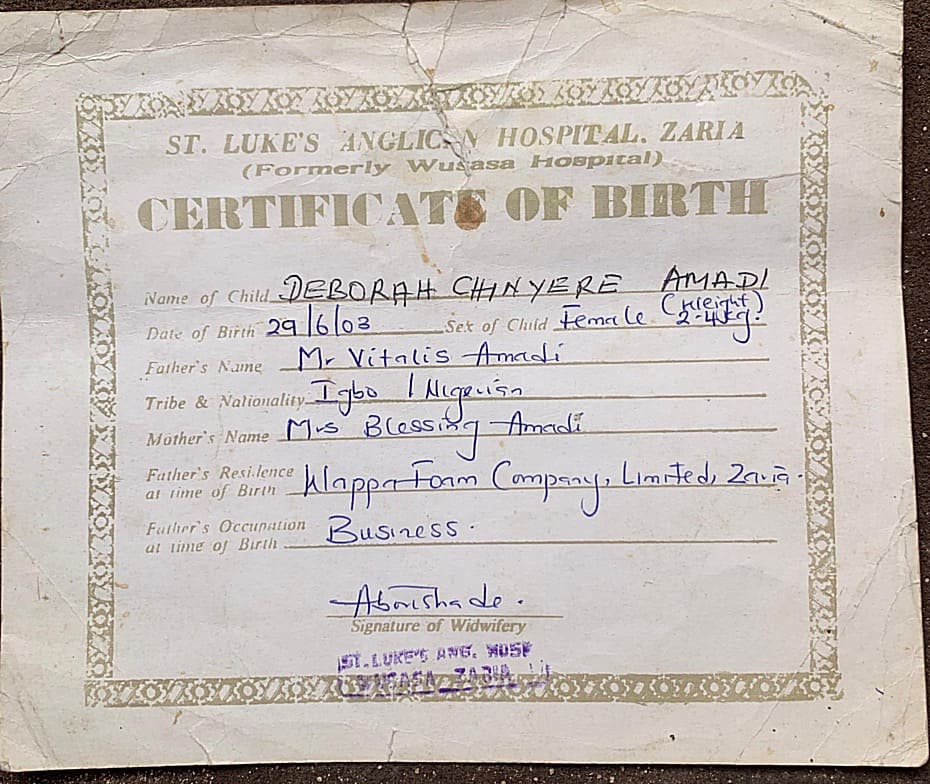 ST. LUKE'S ANGLICAN HOSPITAL. ZARIA
(Formerly Wusasa Hospital)
CERTIFICATE OF BIRTH
Name of Child DEBORAH CHINYERE AMADI
Date of Birth 29/6/03 Sex of Child Female (Weight) 2.4kg.
Father's Name Mr Vitalis Amadi
Tribe & Nationality Igbo / Nigerian
Mother's Name Mrs Blessing Amadi
Father's Residence
at time of Birth Foam Company, Limited, Zaria.
Father's Occupation
at time of Birth Business.
Signature of Widwifery
ST. LUKE'S ANG. HOSP
WUSASA ZARIA